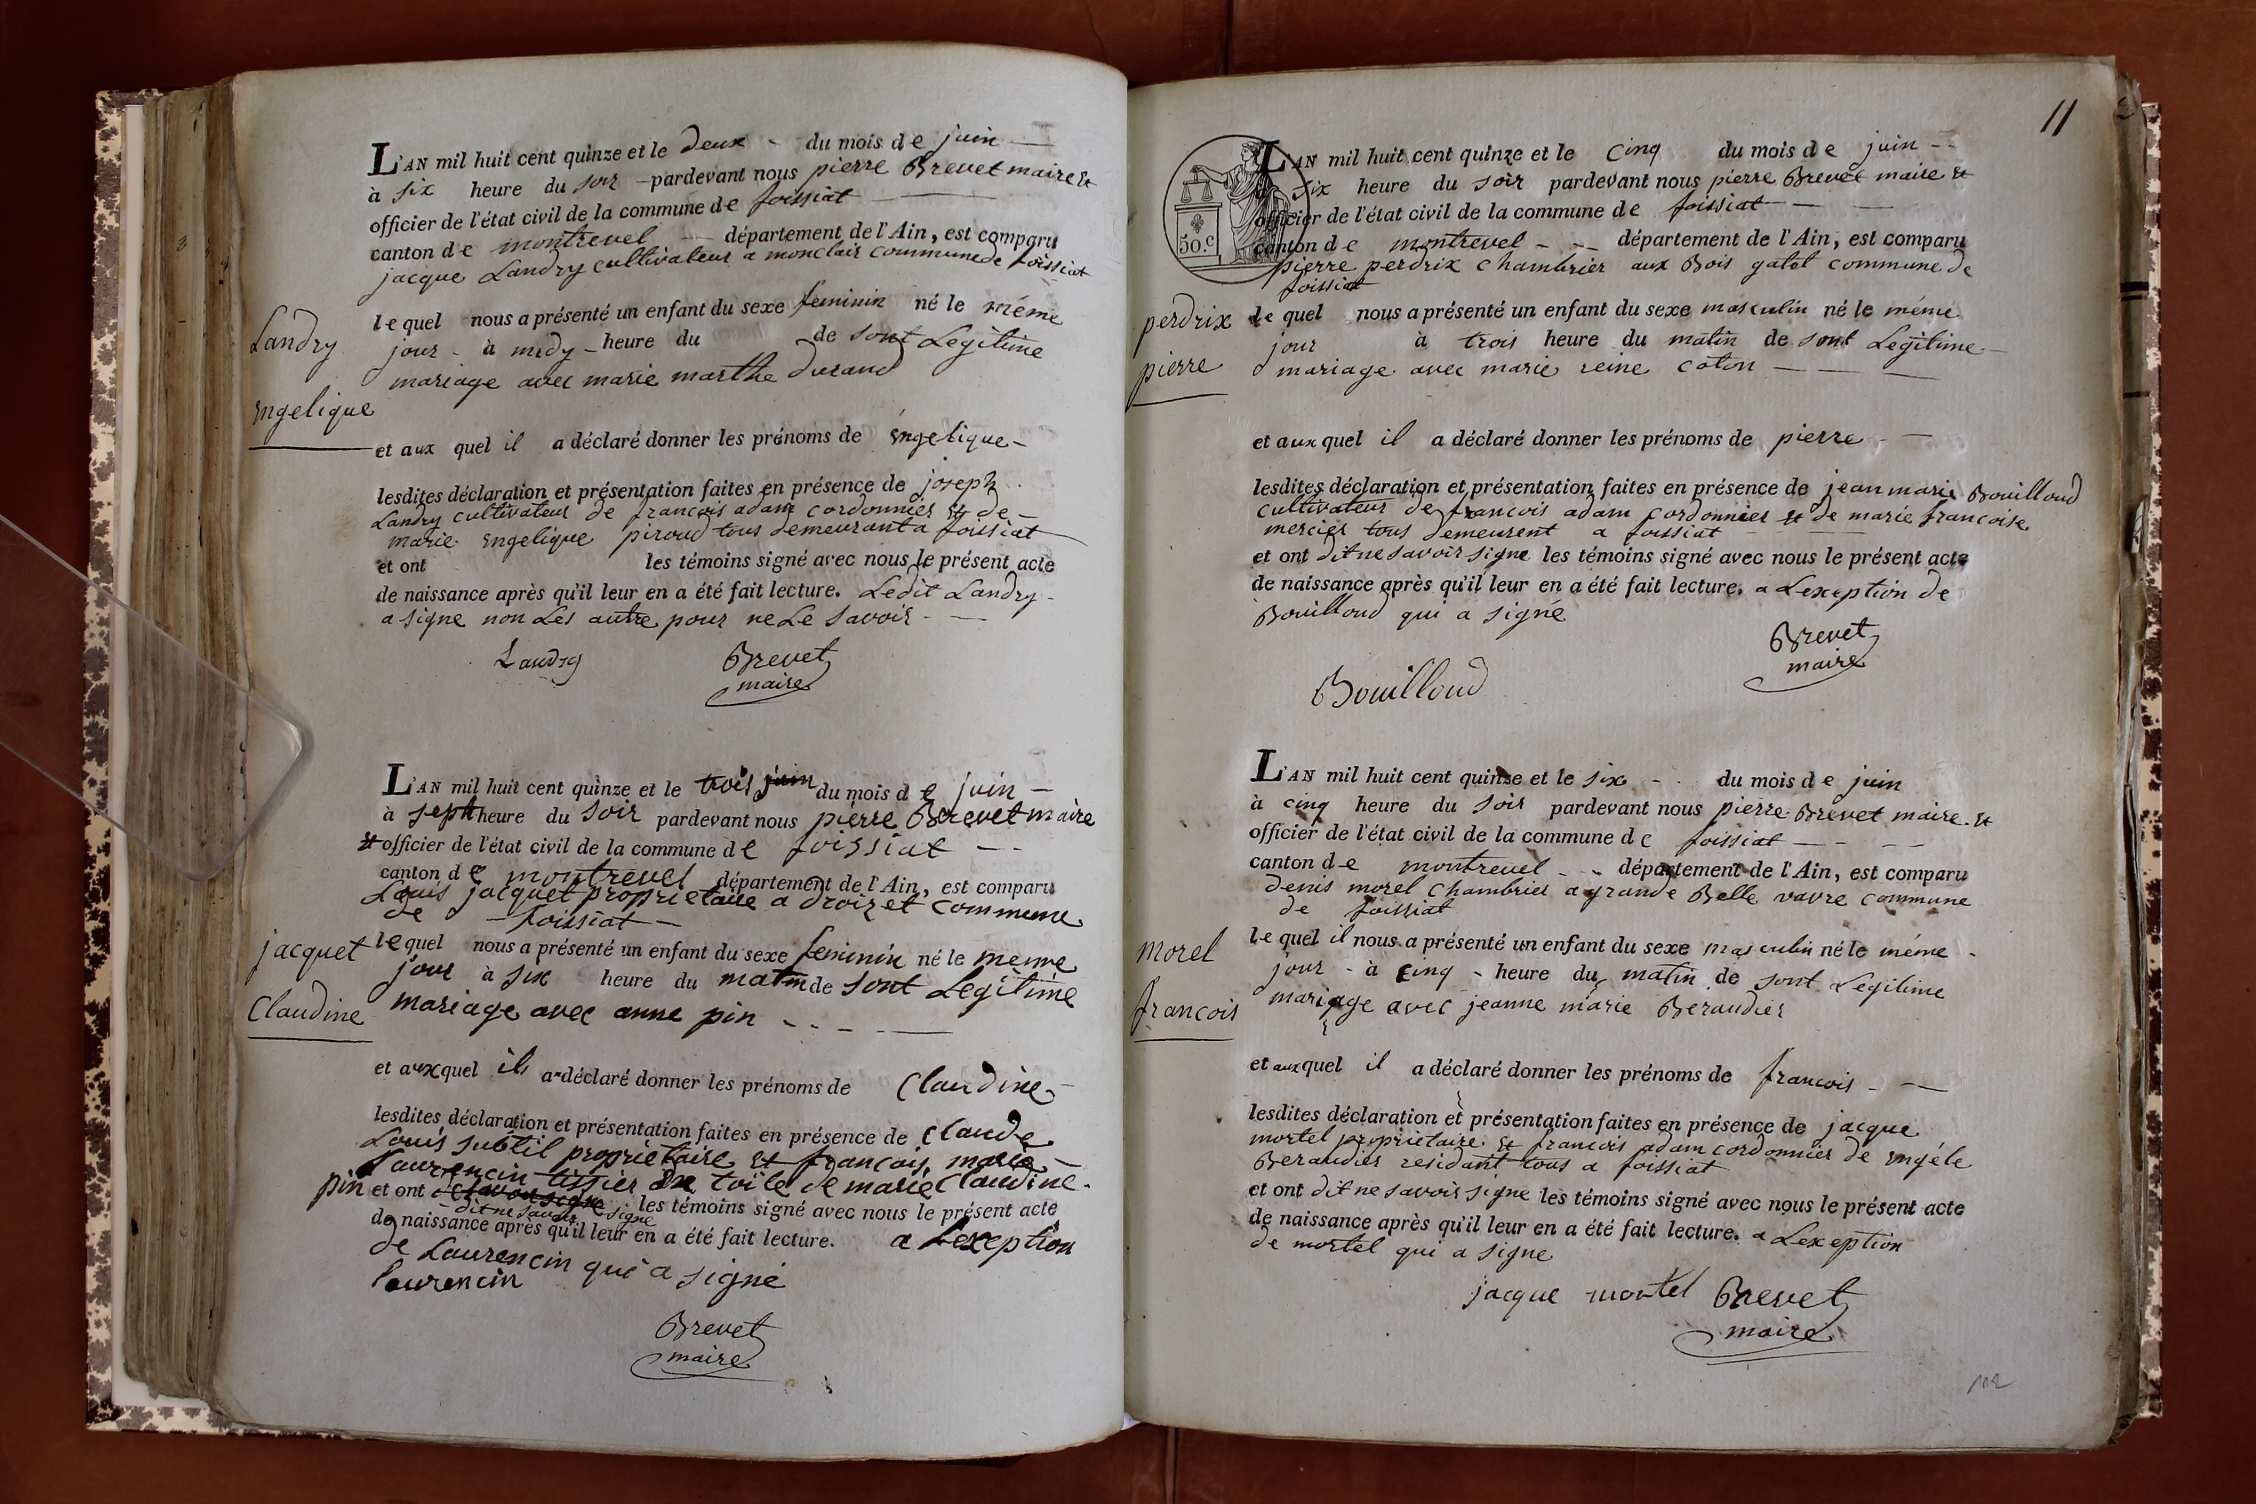 L'AN mil huit cent quinze et le deux - du mois de juin —
à six heure du soir - pardevant nous pierre Brevet maire et
officier de l'état civil de la commune de foissiat —
canton de montrevel - département de l'Ain, est comparu
jacque Landry cultivateur a monclair commune de foissiat
lequel nous a présenté un enfant du sexe feminin né le méme
jour - à midy - heure du de sont Legitime
mariage avec marie marthe durand
Landry
Engelique
et aux quel il a déclaré donner les prénoms de Engelique -
lesdites déclaration et présentation faites en présence de joseph
Landry cultivateur de francois adam cordonnier et de -
marie Engelique piroud tous demeurant a foissiat
et ont les témoins signé avec nous le présent acte
de naissance après qu'il leur en a été fait lecture. Ledit Landry -
a signe non Les autre pour ne Le savoir - —
Landry Brevet
maire
L'AN mil huit cent quinze et le trois juin du mois de juin —
à sept heure du soir pardevant nous pierre Brevet maire
et officier de l'état civil de la commune de foissiat — -
canton de montrevel département de l'Ain, est comparu
Louis jacquet proprietaire a droizet commune
de - foissiat —
lequel nous a présenté un enfant du sexe feminin né le meme
jour à six heure du matin de sont Legitime
mariage avec anne pin - - - —
jacquet
Claudine
et auxquel il a déclaré donner les prénoms de Claudine -
lesdites déclaration et présentation faites en présence de Claude
Louis subtil proprietaire et francois marie -
Laurencin tissier en toile de marie Claudine -
pin et ont de savoir signe les témoins signé avec nous le présent acte
- dit ne savoir signe
de naissance après qu'il leur en a été fait lecture. a Lexeption
de Laurencin qui a signé
laurencin
Brevet
maire
11
50.c
L'AN mil huit cent quinze et le cinq du mois de juin - -
à six heure du soir pardevant nous pierre Brevet maire et
officier de l'état civil de la commune de foissiat — —
canton de montrevel - - département de l'Ain, est comparu
pierre perdrix chambrier aux Bois gatet commune de
foissiat
lequel nous a présenté un enfant du sexe masculin né le méme
jour à trois heure du matin de sont Legitime -
mariage avec marie reine coton — — —
perdrix
pierre
et auxquel il a déclaré donner les prénoms de pierre - —
lesdites déclaration et présentation faites en présence de jean marie Bouilloud
cultivateur de francois adam cordonnier et de marie francoise
mercier tous demeurent a foissiat - —
et ont dit ne savoir signe les témoins signé avec nous le présent acte
de naissance après qu'il leur en a été fait lecture. a Lexception de
Bouilloud qui a signé
Brevet
maire
Bouilloud
L'AN mil huit cent quinze et le six - - du mois de juin
à cinq heure du soir pardevant nous pierre Brevet maire et
officier de l'état civil de la commune de foissiat — - —
canton de montrevel - - département de l'Ain, est comparu
denis morel chambrier a grande Belle vavre commune
de foissiat
lequel il nous a présenté un enfant du sexe masculin né le méme -
jour - à cinq - heure du matin de sont Legitime
mariage avec jeanne marie Beraudier
morel
francois
et auxquel il a déclaré donner les prénoms de francois - —
lesdites déclaration et présentation faites en présence de jacque
mortel proprietaire et francois adam cordonnier de Engéle
Beraudier residant tous a foissiat
et ont dit ne savoir signe les témoins signé avec nous le présent acte
de naissance après qu'il leur en a été fait lecture. a Lexeption
de mortel qui a signe
jacque mortel Brevet
maire
112